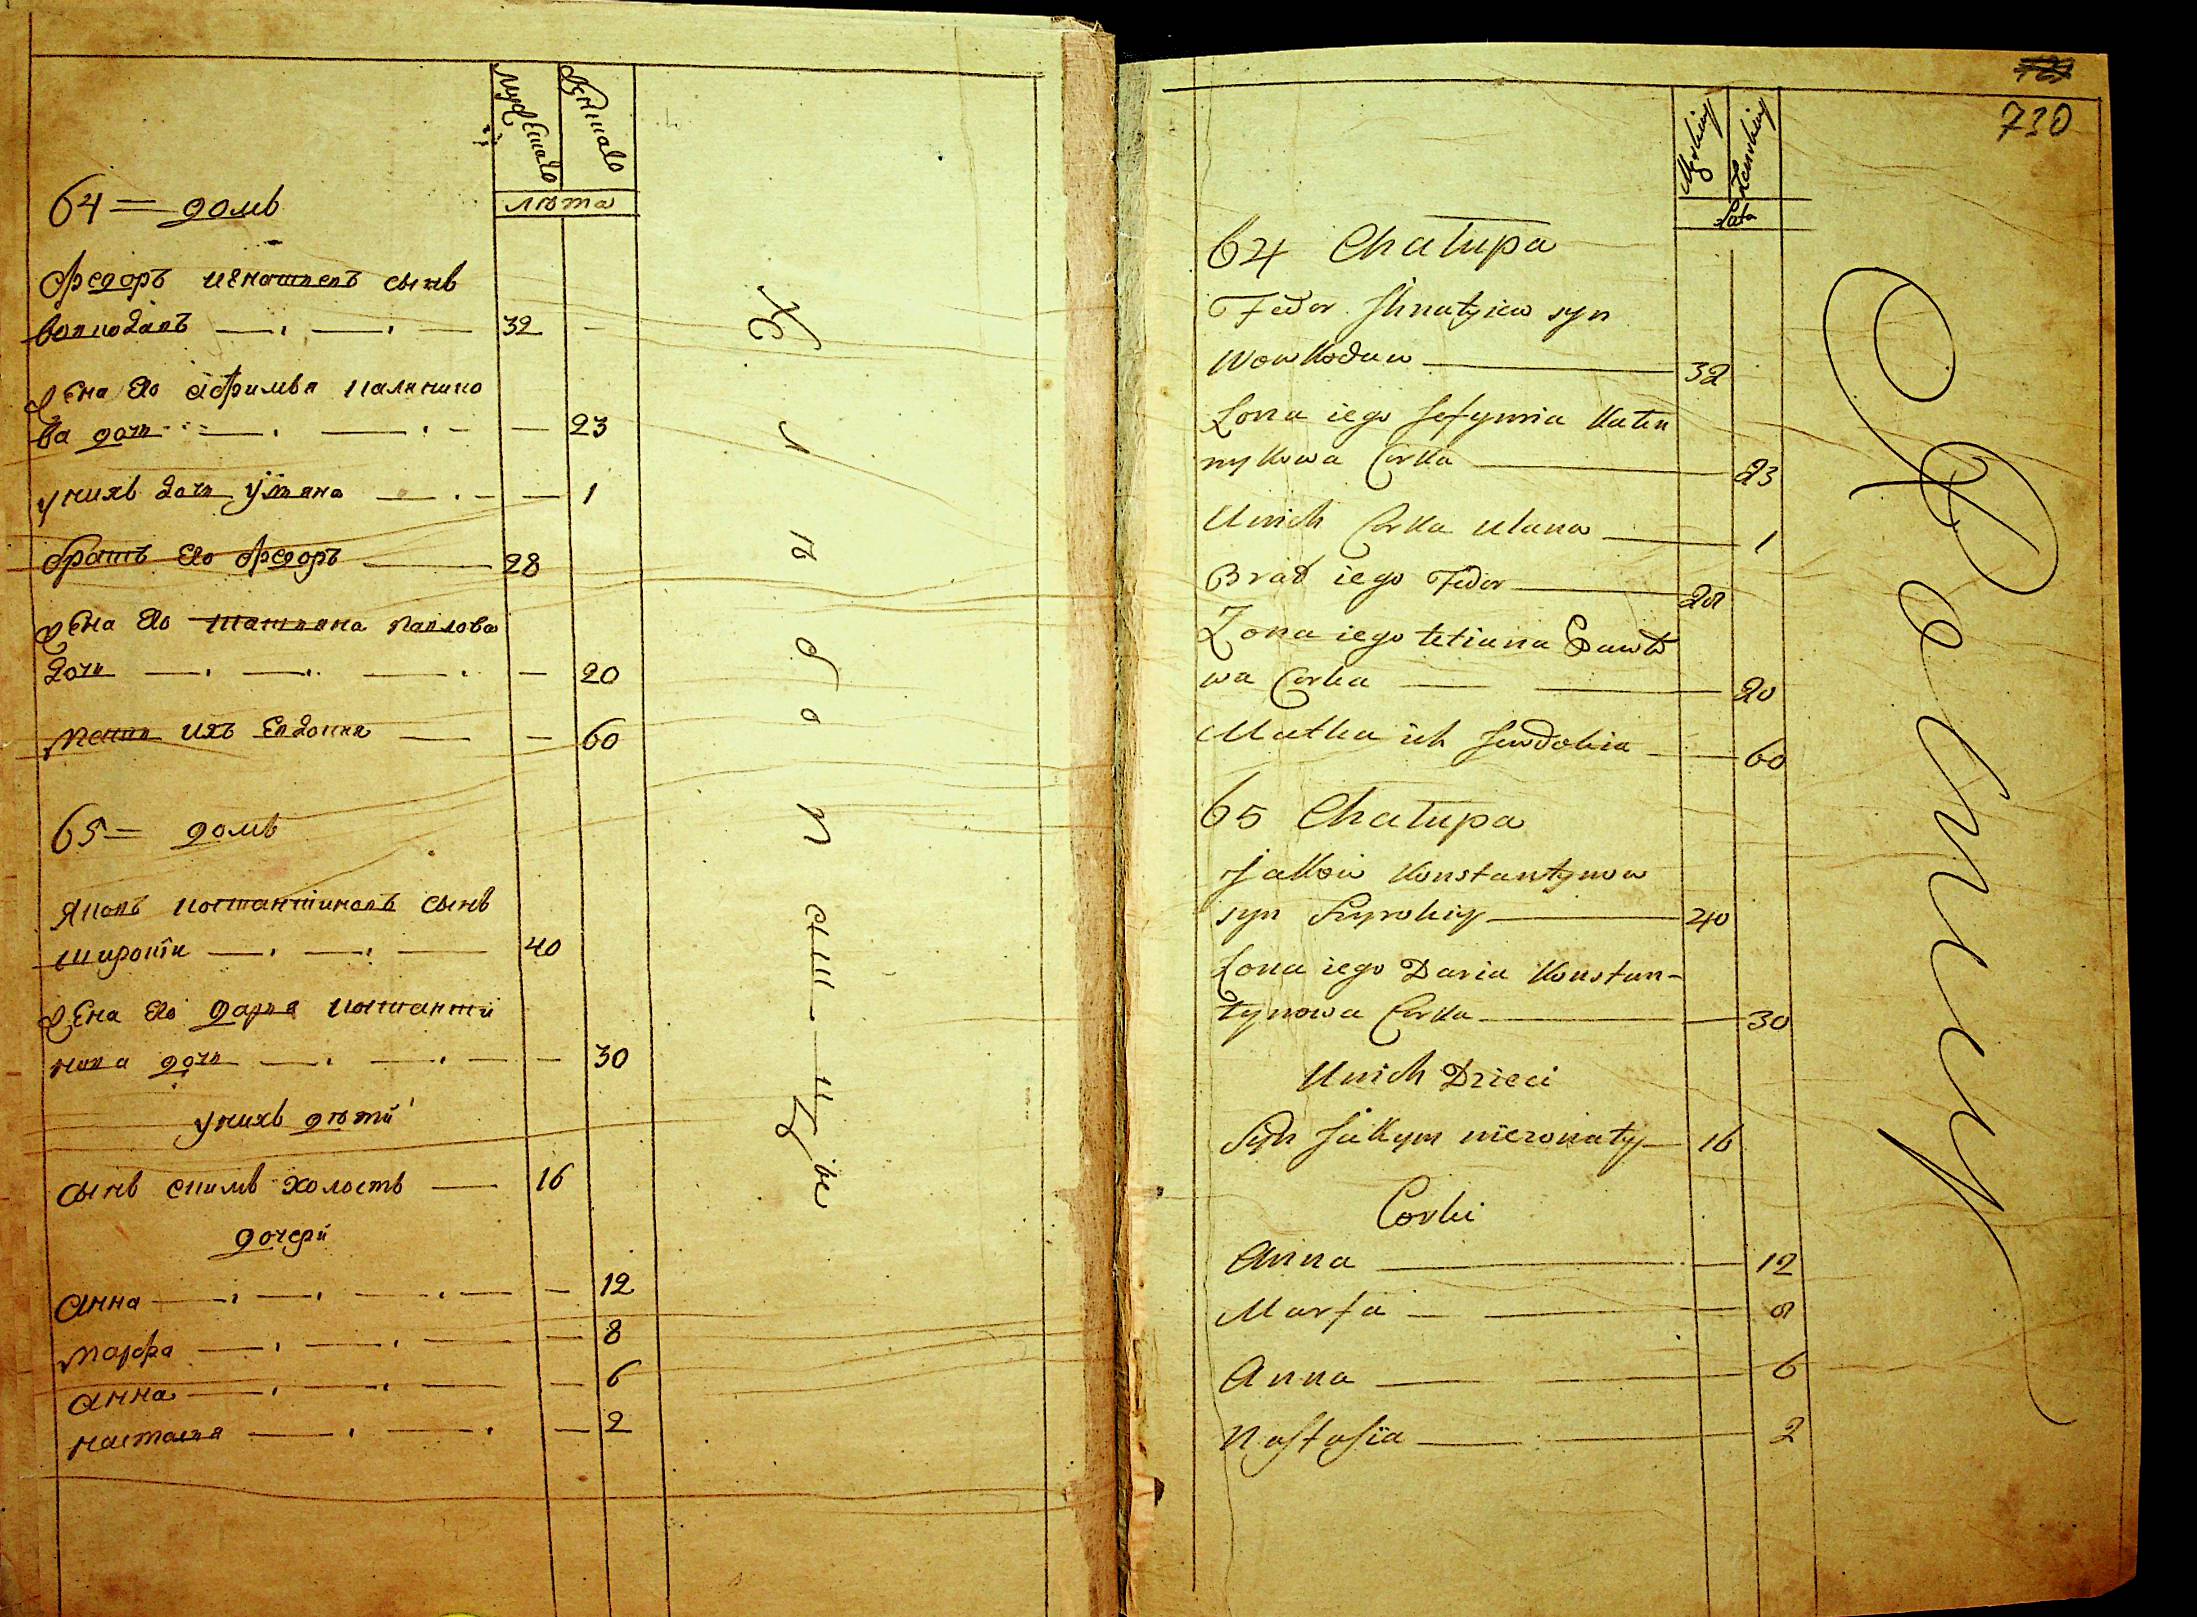 Мужеска
Женска
лѣта
64 = домъ
Федоръ Игнатьевъ сынъ
вовкодавъ 32
Жена его Афимья Калинико
ва дочь 23
у нихъ дочь Ульяна 1
братъ его Федоръ 28
Жена его Татьяна Павлова
дочь 20
мать ихъ Евдокия 60
65 = домъ
Яковъ Костантиновъ сынъ
широкїи 40
Жена его Дарья Костанти
нова дочь 30
у нихъ дѣти
сынъ Екимъ холостъ 16
дочери
Анна 12
Марфа 8
Анна 6
Настасья 2
Хлѣбопашцы
730
Męskiey
Żenskiey
Lata
64 Chałupa
Fedor Ihnatyiew syn
Wowkodaw 32
Zona iego Jefymia Kaley
nykowa Corka 23
Unich Corka Ulana 1
Brat iego Fedor 28
Zona iego tetiana Pawło
wa Corka 20
Matka ich Jewdokia 60
65 Chałupa
Jakow Konstantynow
syn Szyrokiy 40
Zona iego Daria Konstan-
tynowa Corka 30
Unich Dzieci
Syn Jakym nieżonaty 16
Corki
Anna 12
Marfa 8
Anna 6
Nastasïa 2
Rolnicy